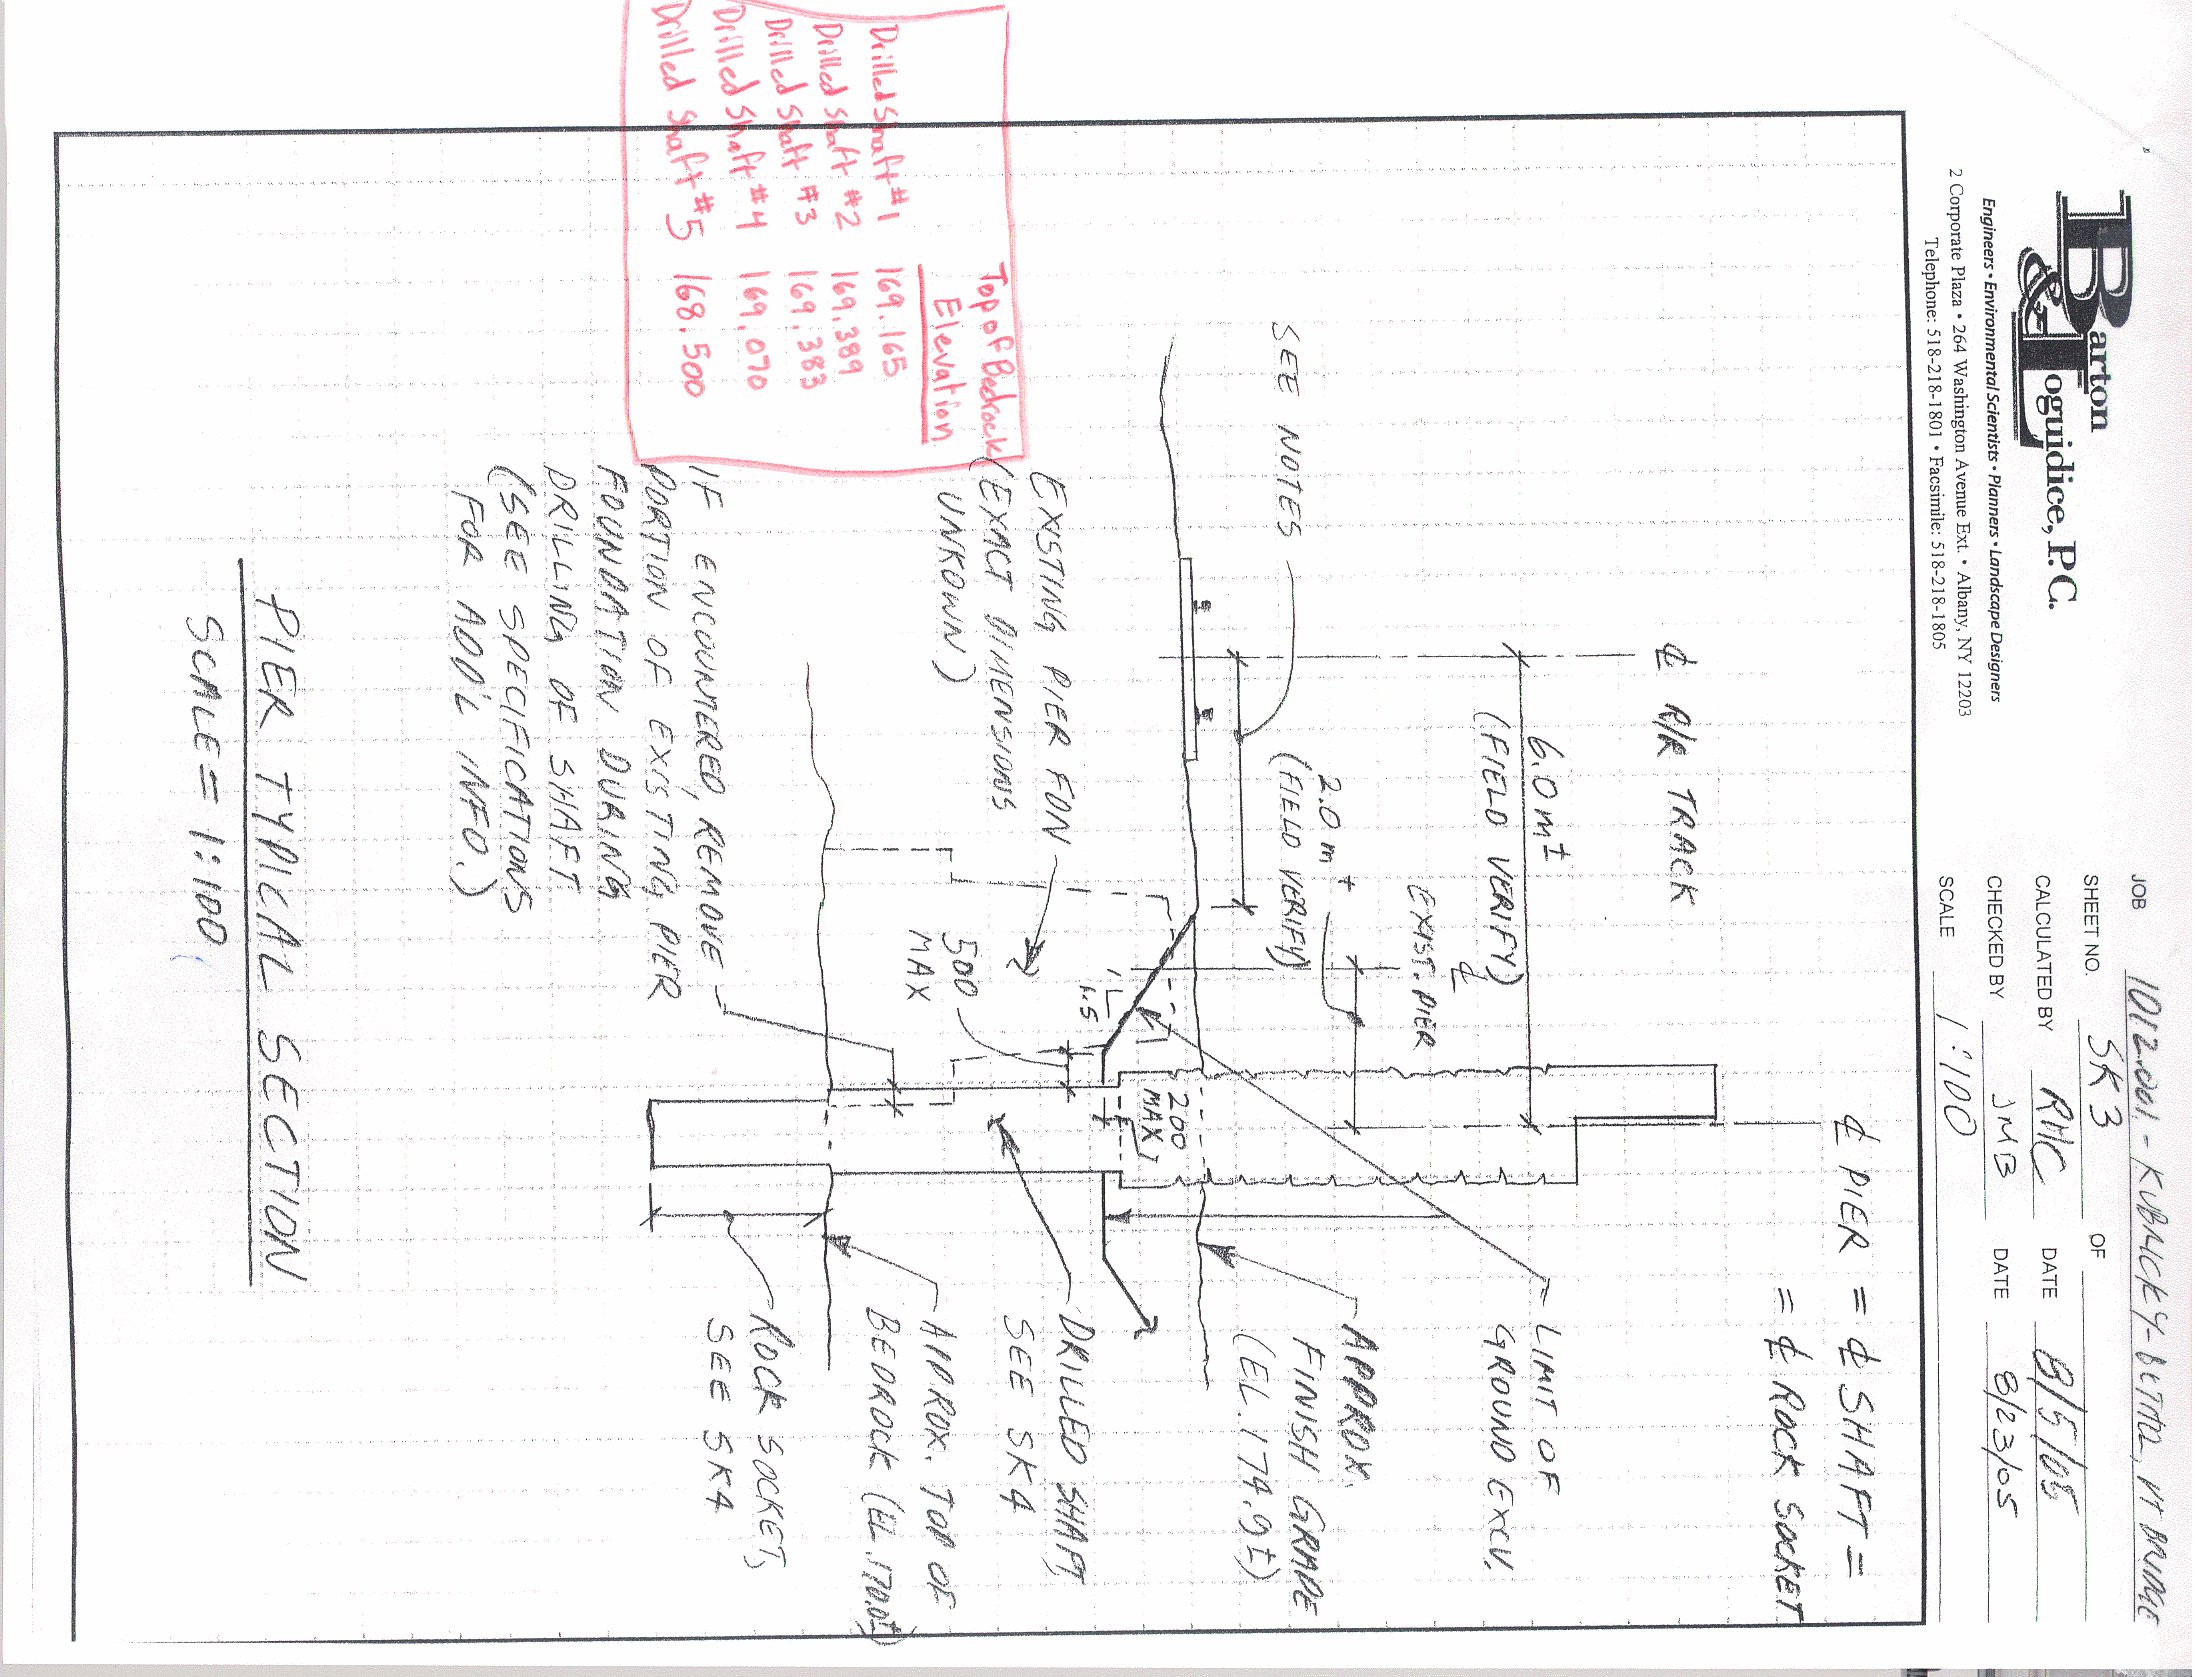 Barton
& Loguidice, P.C.
Engineers • Environmental Scientists • Planners • Landscape Designers
2 Corporate Plaza • 264 Washington Avenue Ext. • Albany, NY 12203
Telephone: 518-218-1801 • Facsimile: 518-218-1805
JOB 1012.001 - KUBRICKY-BETTER, VT BRIDGE
SHEET NO. SK3 OF
CALCULATED BY RHC DATE 8/5/05
CHECKED BY JMB DATE 8/23/05
SCALE 1:100
℄ PIER = ℄ SHAFT =
= ℄ ROCK SOCKET
℄ R/R TRACK
6.0m±
(FIELD VERIFY)
℄
EXIST. PIER
2.0m±
(FIELD VERIFY)
SEE NOTES
LIMIT OF
GROUND EXCV.
APPROX.
FINISH GRADE
(EL. 174.9±)
200
MAX
1
1.5
EXISTING PIER FDN
(EXACT DIMENSIONS
UNKOWN)
500
MAX
DRILLED SHAFT,
SEE SK4
APPROX. TOP OF
BEDROCK (EL. 170.0±)
ROCK SOCKET,
SEE SK4
IF ENCOUNTERED, REMOVE
PORTION OF EXISTING PIER
FOUNDATION DURING
DRILLING OF SHAFT
(SEE SPECIFICATIONS
FOR ADD'L INFO.)
Top of Bedrock
Elevation
Drilled Shaft #1 169.165
Drilled Shaft #2 169.389
Drilled Shaft #3 169.383
Drilled Shaft #4 169.070
Drilled Shaft #5 168.500
PIER TYPICAL SECTION
SCALE = 1:100